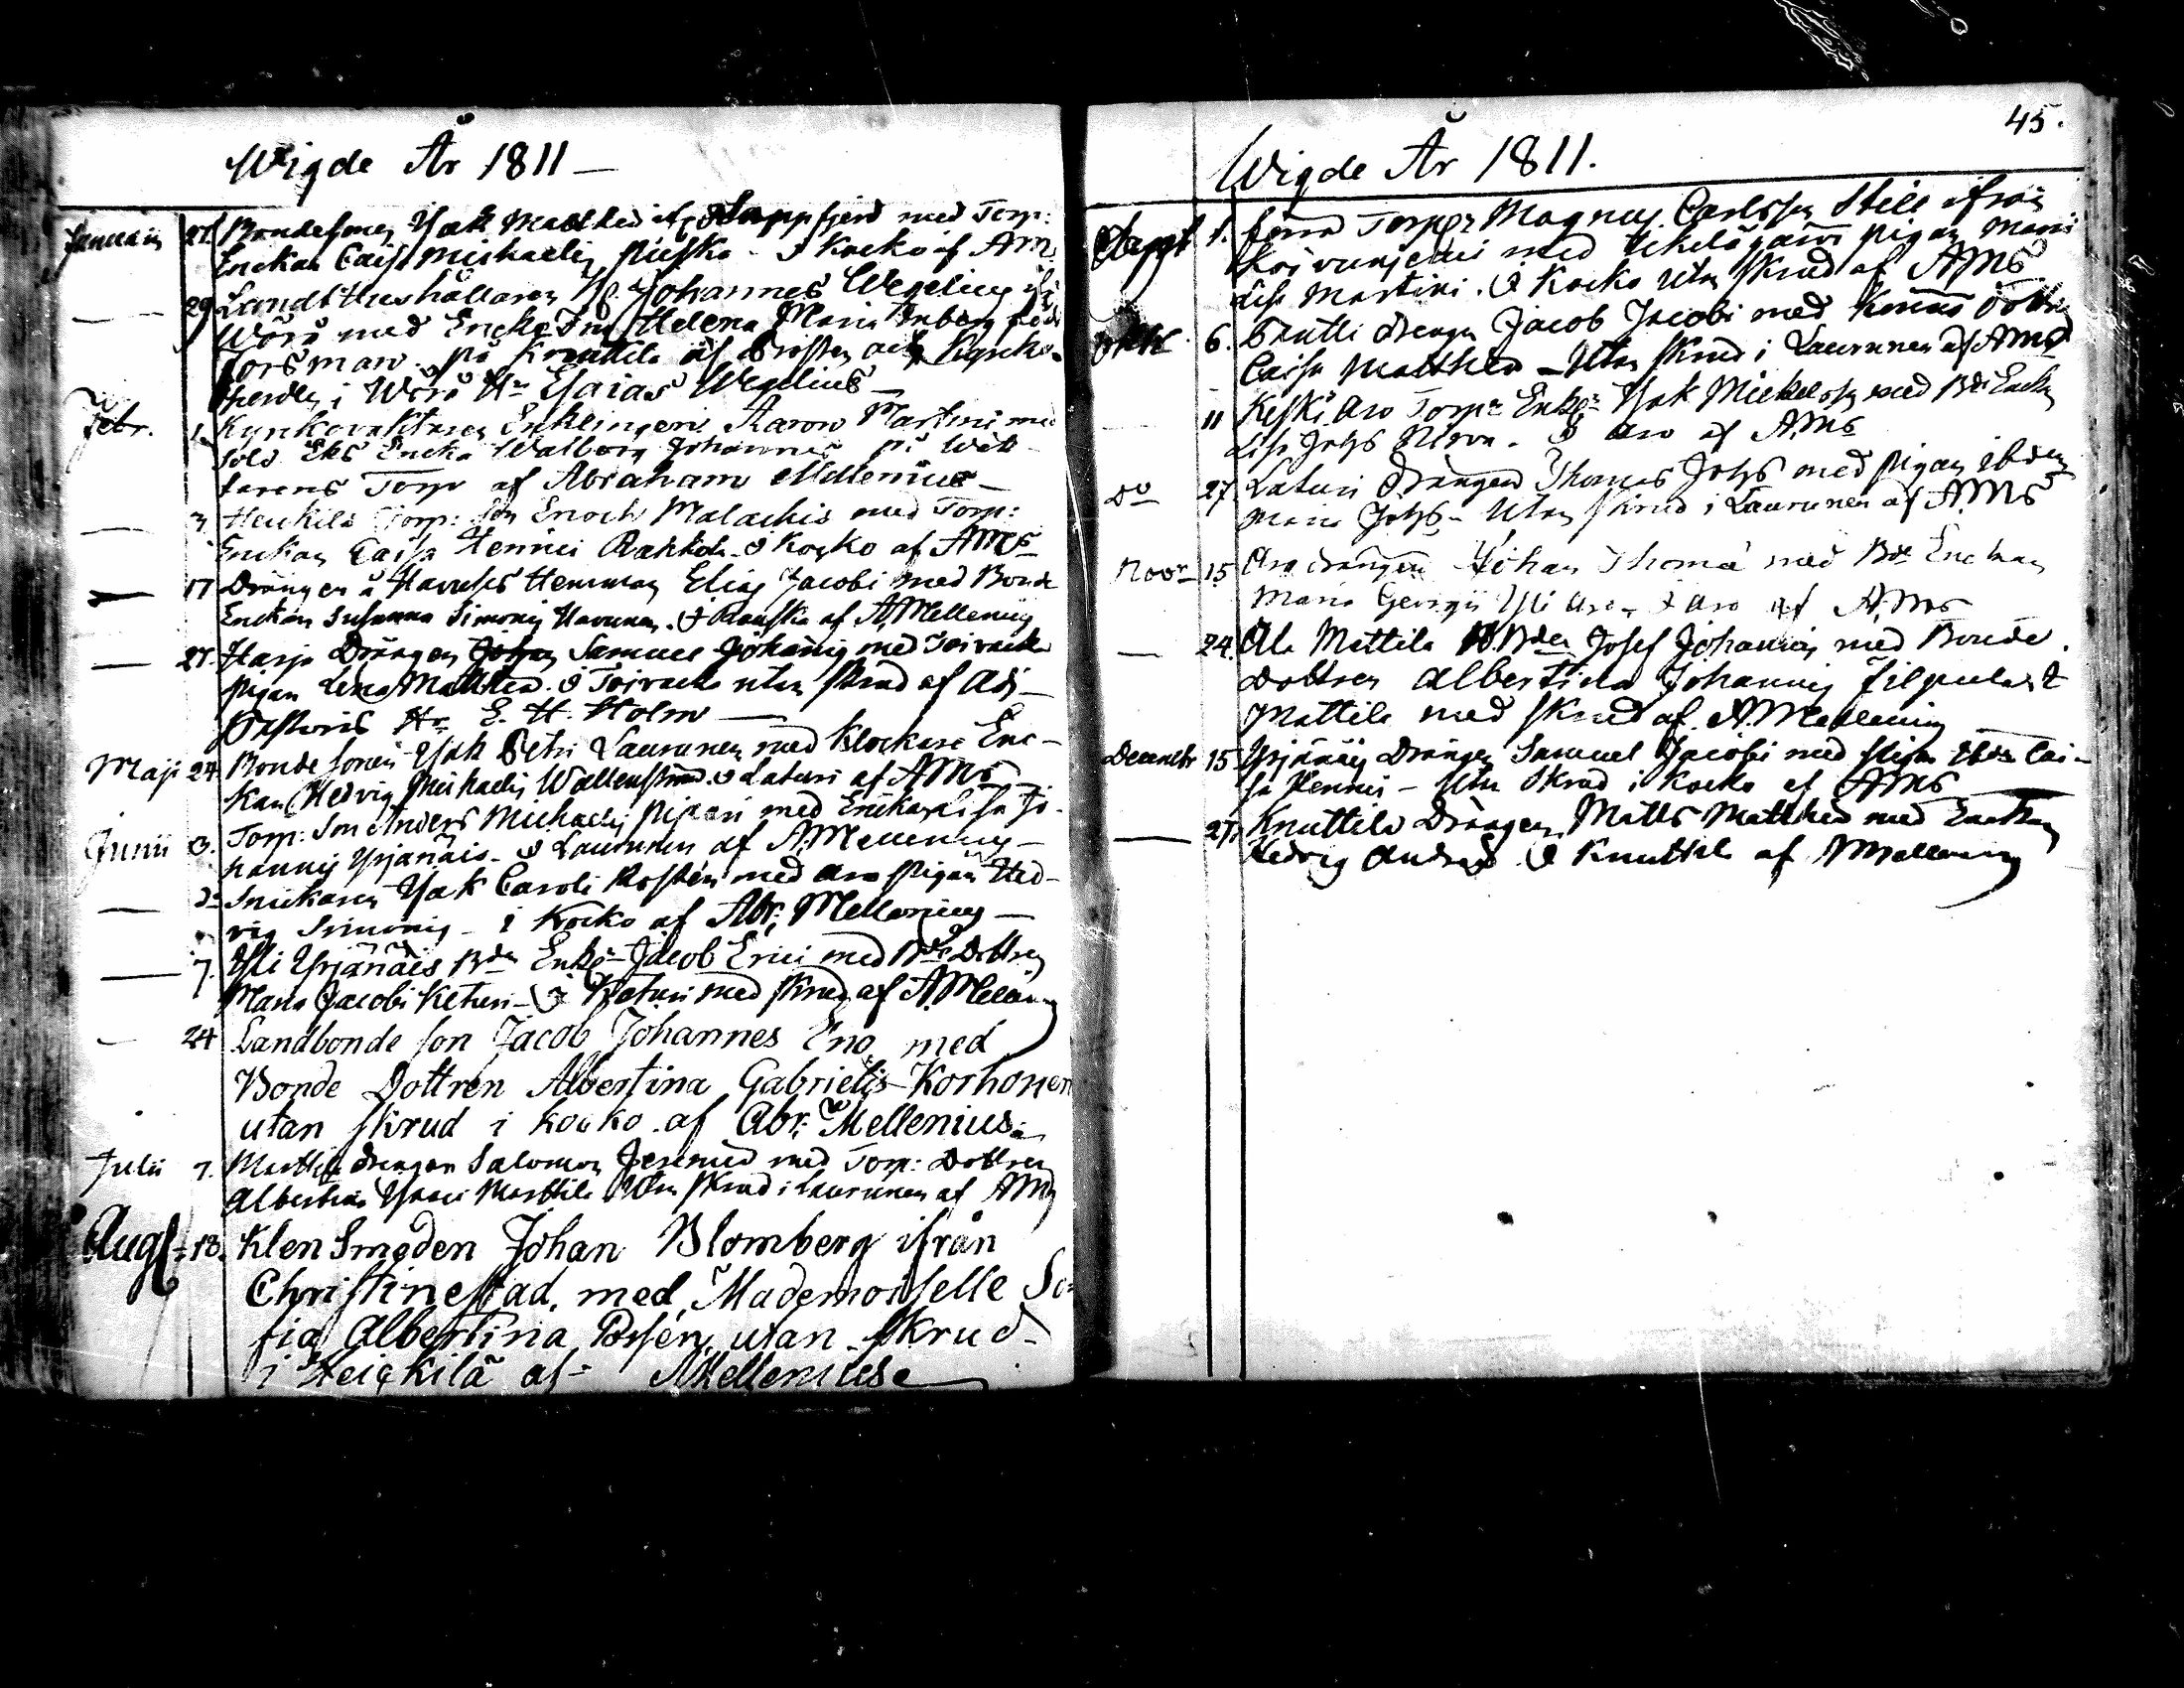 Wigde År 1811
Januarii 27. Bondesonen Isak Matthei ifr. Lappfjerd med Torp:
Enckan Caisa Michaelis Piesko - I Kocko af AMs
29. Landt Hushållaren Johannes Wegelius ifr
Wörå med Encke Fru Helena Maria född
Forsman på Knuttila af Prosten och Kyrcko-
herden i Wörå Hr Esaias Wegelius
Febr. 1. Kyrkovaktaren Enklingen Aaron Martini med
Sold. Eks Encka Walborg Johannis på Wäk-
tarens Torp af Abraham Mellenius
3 Heickilä Torp: Son Enoch Malachiæ med Torp:
Enckan Caisa Henrici Rahkola I Kocko af AMs
17 Drängen å Havukes Hemman Elias Jacobi med Bonde
Enckan Susanna Simonis Havunen. I af A Mellenius
27. Harja Drängen Samuel Johannis med Toivacka
pigan Lena Matthei. I Toivacka utan skrud af Adj-
Pastoris Hr E. H. Holm
Maji 24 Bonde sonen Isak Petri Laurunen med Klockare Enc-
kan Hedvig Michaelis Wallenstråd. I Laturi af AMs
Junii 3. Torp: Son Anders Michaelis med Enckan Lisa Jo-
hannis Yrjänäis - I Laurunen af A. Mellenius
Do Snickaren Isak Caroli Rosten med Aro Pigan Hed-
vig Simonis - i Kocko af Abr: Mellenius
7. Yli Yrjänäis Bden Enkl: Jacob Erici med Bde Dottren
Maria Jacobi Keturi - I Keturi med skrud af A Mellenius
24 Landbonde son Jacob Johannes Eno med
Bonde Dottren Albertina Gabrielis Korhonen
utan skrud i kocko af Abr: Mellenius
Julii 7. Marttila drengen Salomon med Torp: Dottren
Albertina Isaaci Marttila Utan skrud i Laurunen af AMs
Augs. 18. Klen Smeden Johan Blomberg ifrån
Christinestad, med Mademoiselle So-
fia Albertina utan skrud
i Heickilä af A Mellenius
45.
Wigde År 1811.
Sept 1. förra Torpr Magnus Carlsson Stille ifrån
med pigan Maria
Lisa Martini. I Kocko Utan skrud af AMs
6. drengen Jacob Jacobi med Dottren
Caisa Matthei - Utan skrud i Laurunen af AMs
11 Keski Aro Torpr Enkl: Isak Mickelson med Bde Enckan
Lisa Johs . I Aro af AMs
Do 27 Laturi drängen Thomas Johs med pigan ibdem
Maria Johs - Utan skrud i Laurunen af AMs
Novr 15 Aro drängen Johan Thomæ med Bde Enckan
Maria Georgii Yli Aro - I Aro af AMs
24. Ala Mattila Bden Josef Johannis med Bonde
Dottren Albertina Johannis Filpula I
Mattila med skrud af A. Mellenius
Decembr 15 Yrjänäis Drängen Samuel Jacobi med pigan Ibdm Cai-
sa Henrici - Utan Skrud i Kocko af AMs
27. Knuttila Drängen Matts Matthei med Enckan
Hedvig Andreæ I Knuttila af A Mellenius